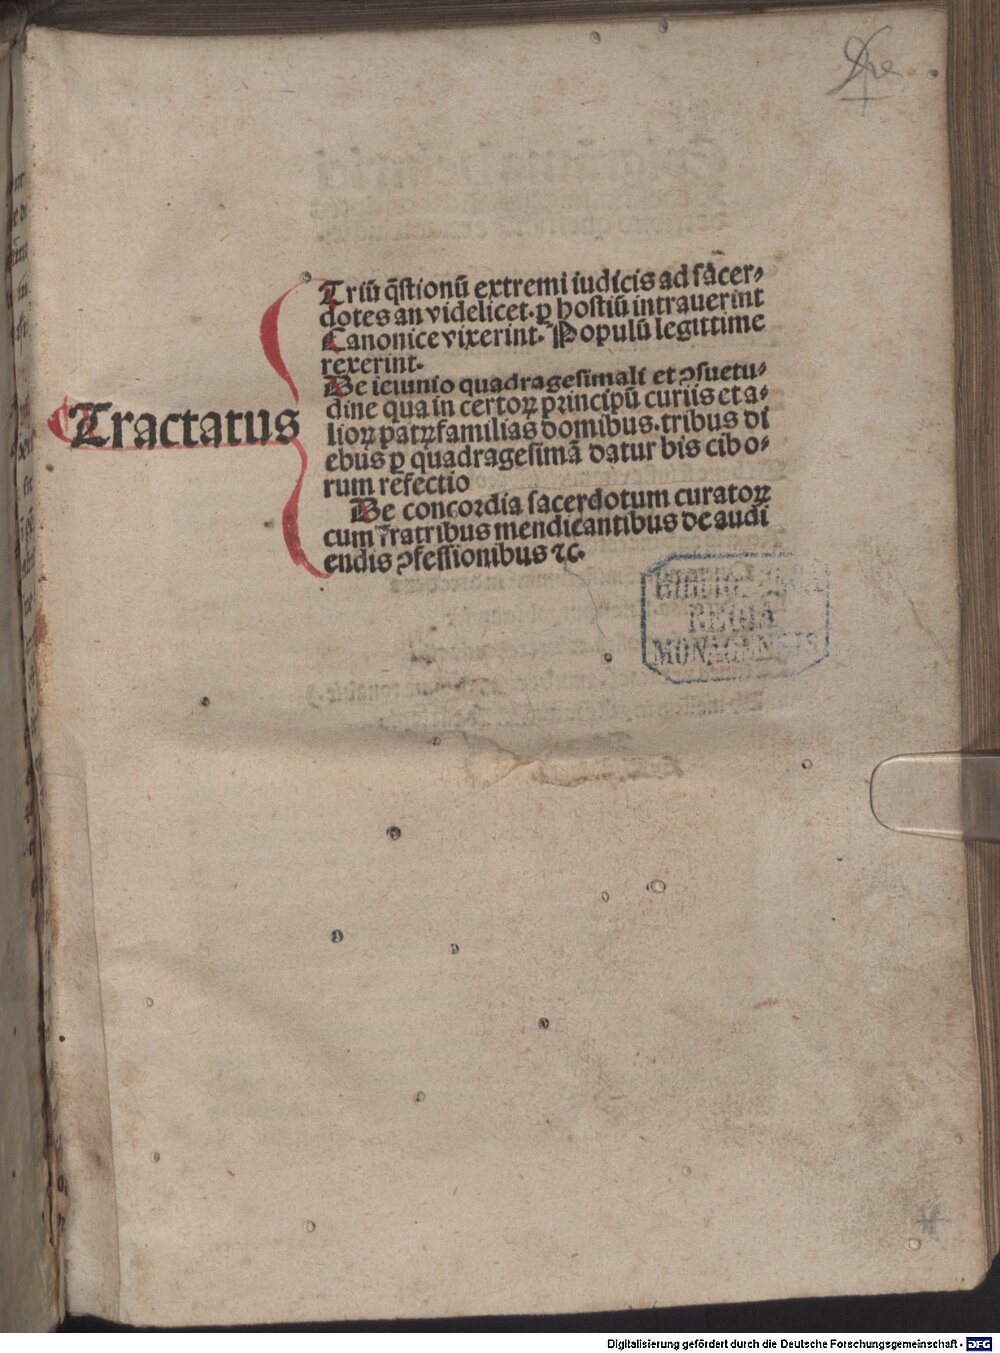 Tractatus
Triū q̄stionū extremi iudicis ad sācer⸗
dotes an videlicet. ꝑ hostiū intrauerint
Canonice vixerint. Populū legittime
rexerint.
De ieiunio quadragesimali et ꝯsuetu⸗
dine qua in certoꝝ principū curiis et a⸗
lioꝝ patꝝfamilias domibus. tribus di
ebus ꝑ quadragesimā datur bis cibo⸗
rum refectio
De concordia sacerdotum curatoꝝ
cum fratribus mendicantibus de audi
endis ꝯfessionibus ⁊c.
REGIA
MONACENSIS
Digitalisierung gefördert durch die Deutsche Forschungsgemeinschaft - DFG